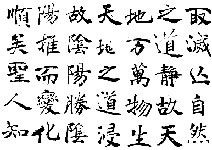 取滅亡自然
之道靜故天
地萬物生
天地之道浸
故陰陽勝陰
陽推而變化
順矣聖人知